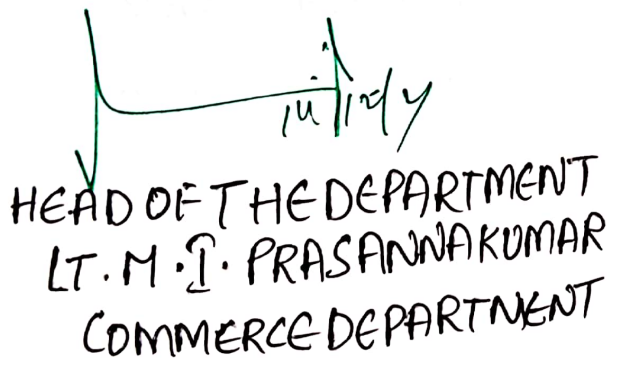 HEAD OF THE DEPARTMENT
LT. M. I. PRASANNAKUMAR
COMMERCE DEPARTMENT